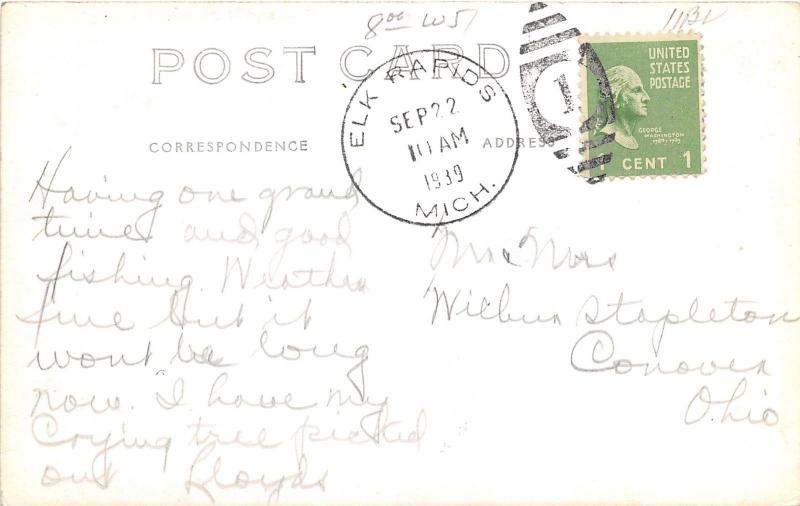 8⁰⁰ W51
11BV
POST CARD
CORRESPONDENCE
ADDRESS
ELK RAPIDS
SEP 22
11 AM
1939
MICH.
1
UNITED
STATES
POSTAGE
GEORGE
WASHINGTON
1789-1797
1 CENT 1
Having one grand
time and good
fishing. Weather
fine but it
wont be long
now. I have my
Crying tree picked
out Lloyds
Mr & Mrs
Wilbur Stapleton
Conover
Ohio